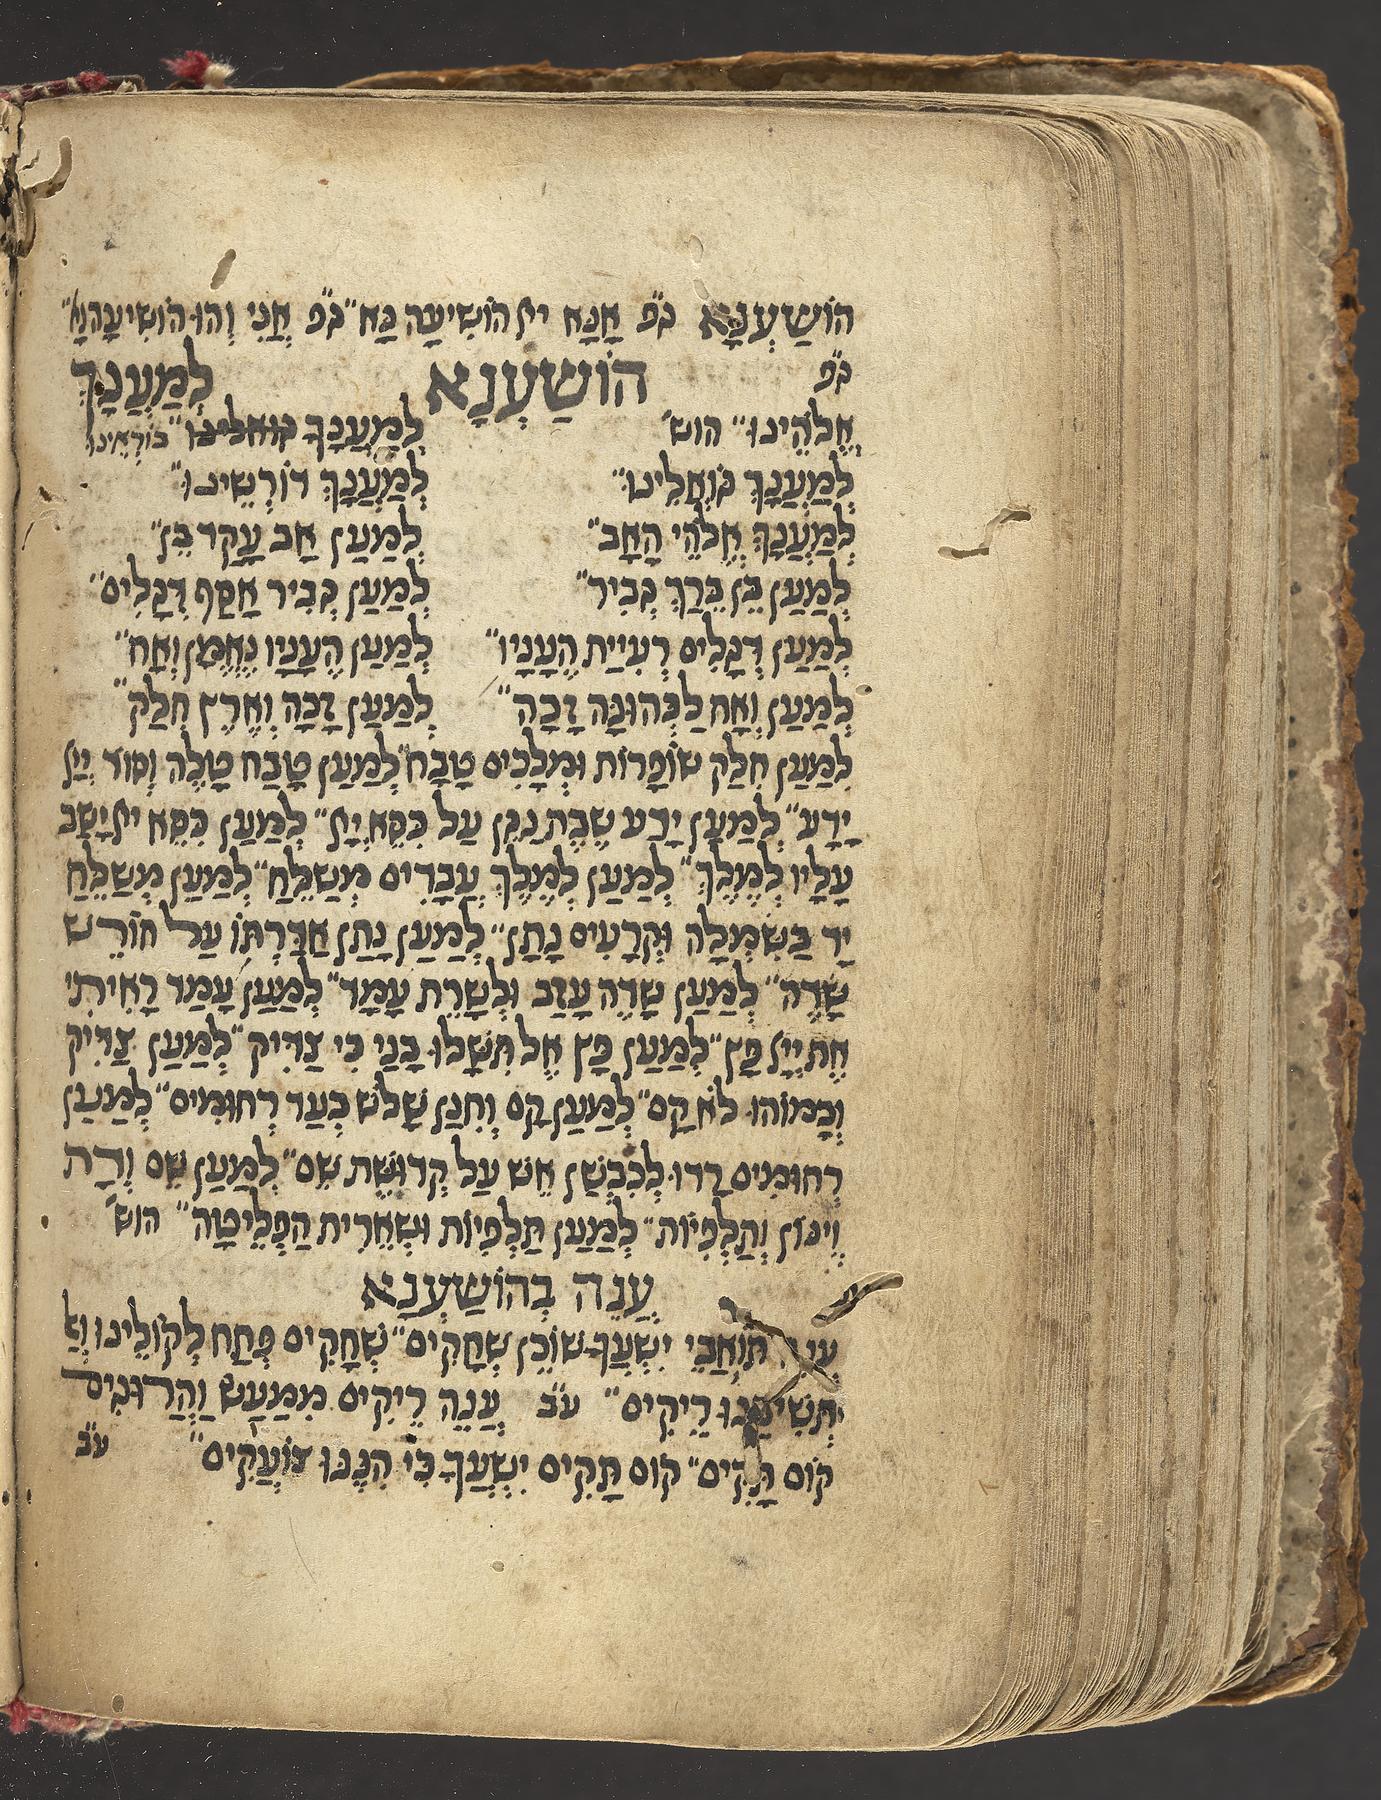 הוֹשַׁעְנָא ג֞פ אָנָּא ייֺ הוֹשִׁיעָה נָּא״ ג֞פ אֲנִי וְהוּ הוֹשִׁיעָהנָּא״
ג֞פ הוֹשַׁעְנָא לְמַעֲנָךְ
אֱלֹהֵינוּ״ הוש׳ לְמַעֲנָךְ גואלינו״ בוֹרְאֵינוּ
לְמַעֲנָךְ גּוֹאֲלֵינוּ״ לְמַעֲנָךְ דוֹרְשֵׁינוּ״
לְמַעֲנָךְ אֱלֹהֵי הָאָב״ לְמַעַן אַב עָקַד בֵּן״
לְמַעַן בֵּן בֵּרַךְ גְּבִיר״ לְמַעַן גְּבִיר אָסַף דְּגָלִים״
לְמַעַן דְּגָלִים רְעִיַּית הֶעָנָיו״ לְמַעַן הֶעָנָיו נֶאֱמָן וְאָח״
לְמַעַן וְאָח לַכְּהוּנָּה זָכָה״ לְמַעַן זָכָה וְאֶרֶץ חִלַּק״
לְמַעַן חִלַּק שׁוֹפָרוֹת וּמְלָכִים טָבָח״ לְמַעַן טָבַח טָלֶה וְסוֹד יְיָ֗
יָדָע״ לְמַעַן יָדַע שֶׁבֶת נָכֹן עַל כִּסֵּא יְיָ֗״ לְמַעַן כִּסֵּא ייֺ יָשַׁב
עָלָיו לְמֶלֶךְ״ לְמַעַן לְמֶלֶךְ עֲבָדִים מְשַׁלֵּחַ״ לְמַעַן מְשַׁלֵּחַ
יָד בַּשִּׂמְלָה וּקְרָעִים נָתַן״ לְמַעַן נָתַן אַדַּרְתּוֹ עַל חוֹרֵשׁ
שָׂדֶה״ לְמַעַן שָׂדֶה עָזַב וּלְשָׁרֵת עָמָד״ לְמַעַן עָמַד רָאִיתִי
אֶת יְיָ֗ פָּץ״ לְמַעַן פָּץ אַל תִּשָּׁלוּ בָּנַי כִּי צַדִּיק״ לְמַעַן צַדִּיק
וְכָמוֹהוּ לֹא קָם״ לְמַעַן קָם וְחִנַּן שָׁלֹשׁ בְּעַד רְחוּמִים״ לְמַעַן
רְחוּמִים יָרְדוּ לְכִבְשַׁן אֵשׁ עַל קְדוּשַּׁת שֵׁם״ לְמַעַן שֵׁם וְדָת
וְצִיּוֹן וְתַלְפִּיּוֹת״ לְמַעַן תַּלְפִּיּוֹת וּשְׁאֵרִית הַפְּלֵיטָה״ הוש׳
עֲנֵה בְּהוֹשַׁעְנָא
תּוֹאֲבֵי יִשְׁעֲךָ שׁוֹכֵן שְׁחָקִים״ שְׁחָקִים פְּתַח לְקוֹלֵינוּ וְאַ
תְּשִׁיבֵנוּ רֵיקִים״ ע֞ב עֲנֵה רֵיקִים מִמַּעַשׂ וַהֲרוּגִים
קוֹם תָּקִים״ קוֹם תָּקִים יִשְׁעֲךָ כִּי הִנֶּנּוּ צוֹעֲקִים״ ע֞ב